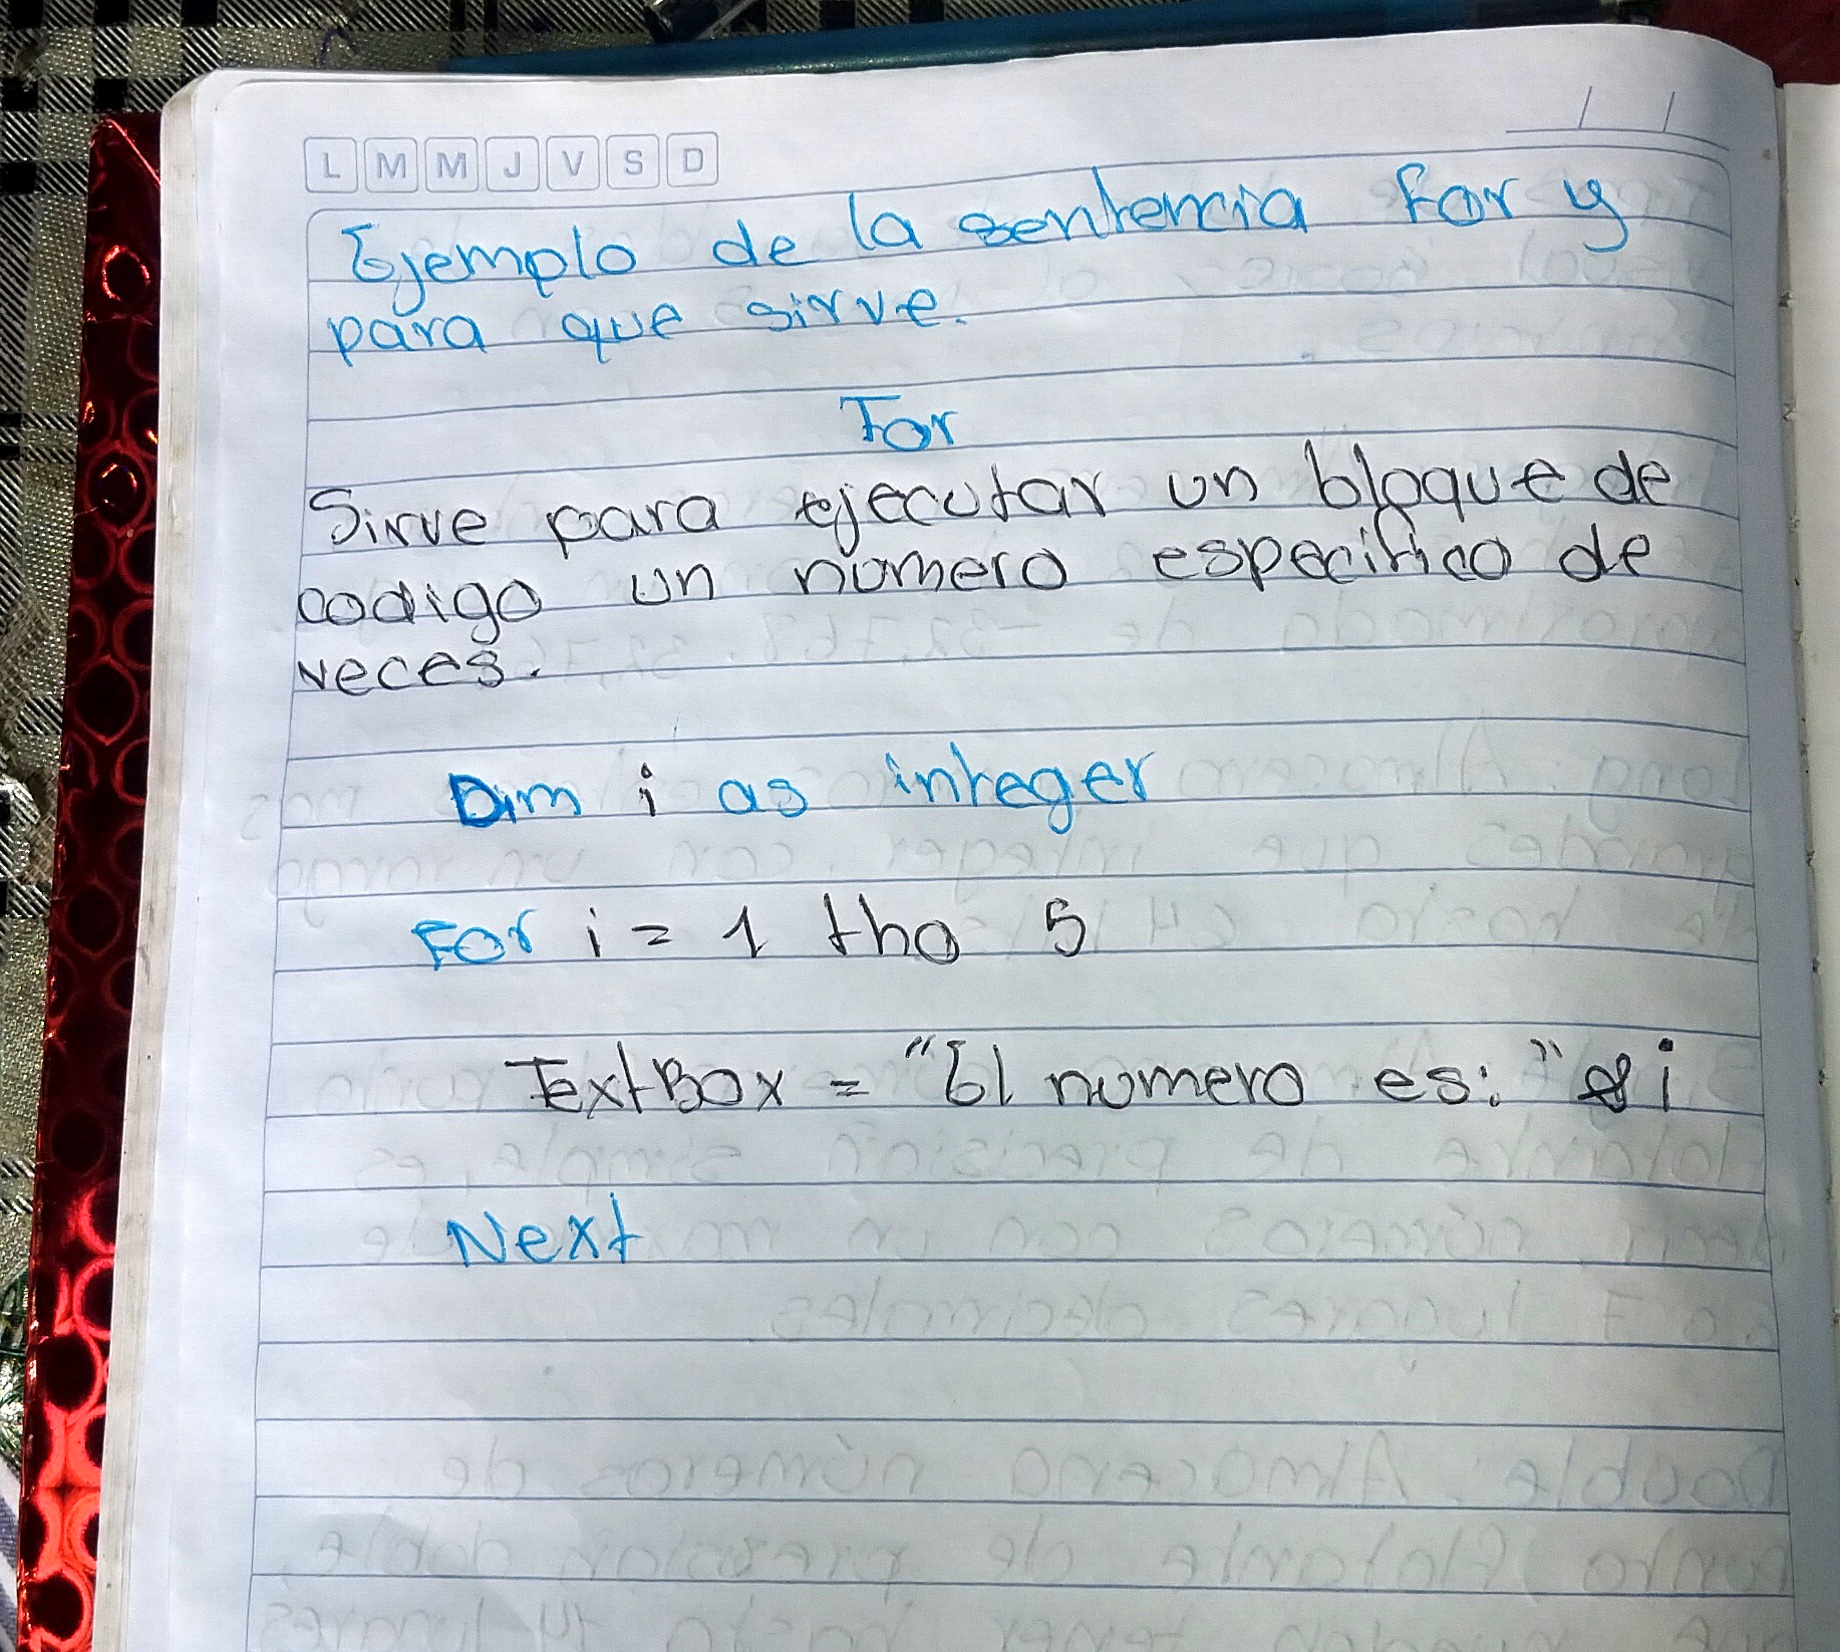 L M M J V S D
Ejemplo de la sentencia For y
para que sirve.
For
Sirve para ejecutar un bloque de
codigo un numero especifico de
veces.
Dim i as integer
For i = 1 tho 5
TextBox = "El numero es: " & i
Next